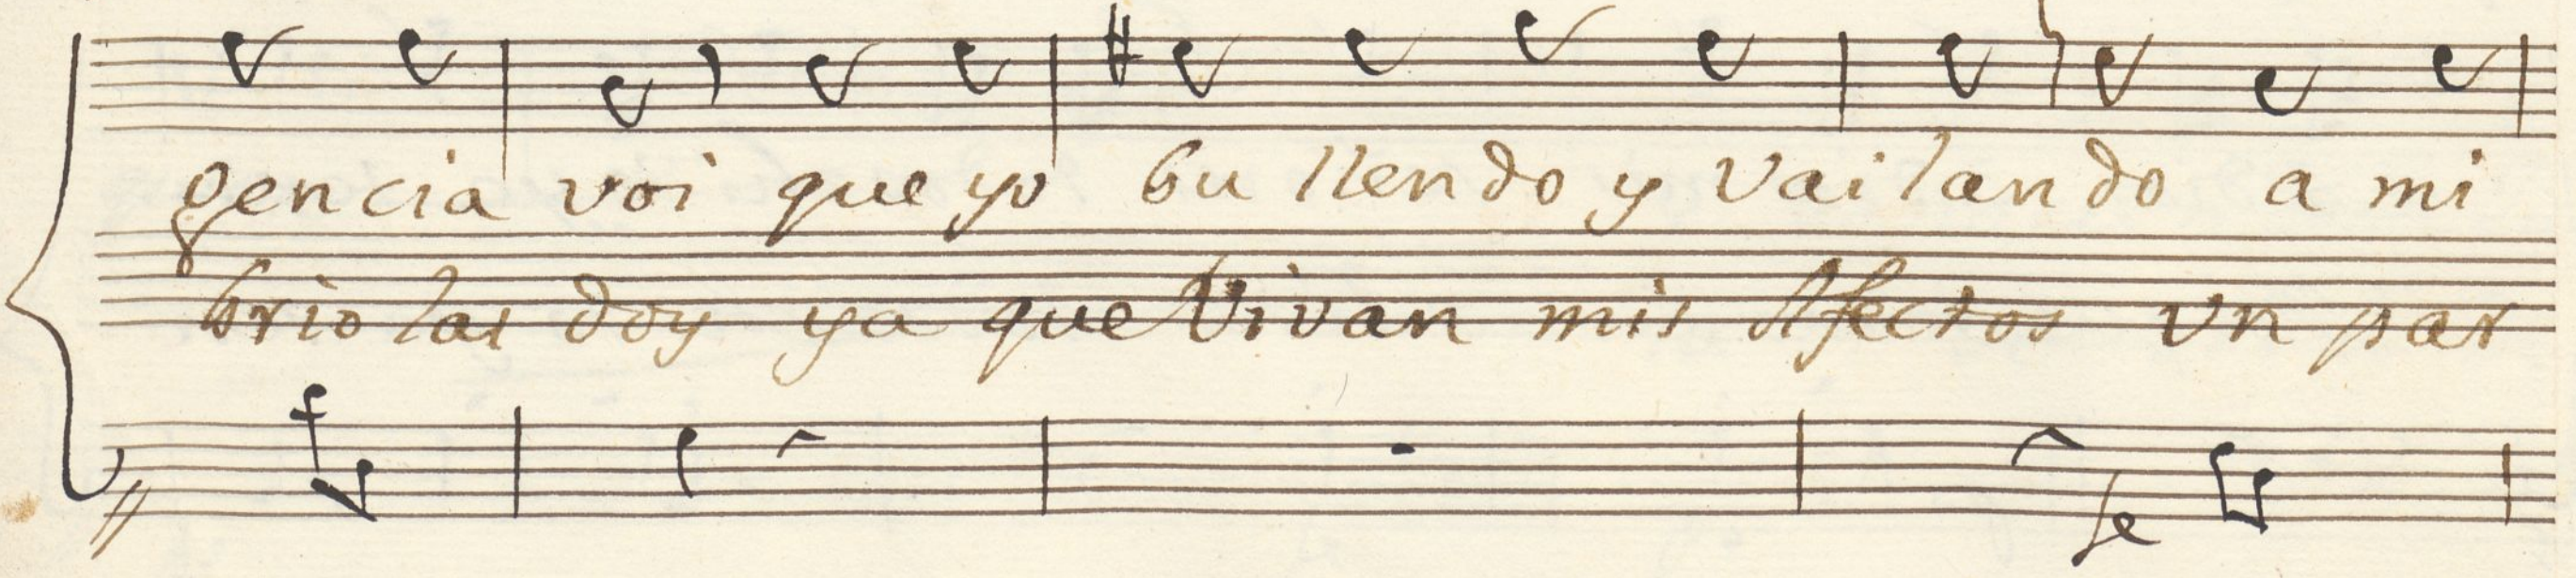 gencia voi que yo bu llen do y vai lan do a mi
brio las doy ya que Vivan mis Afectos vn par
fe